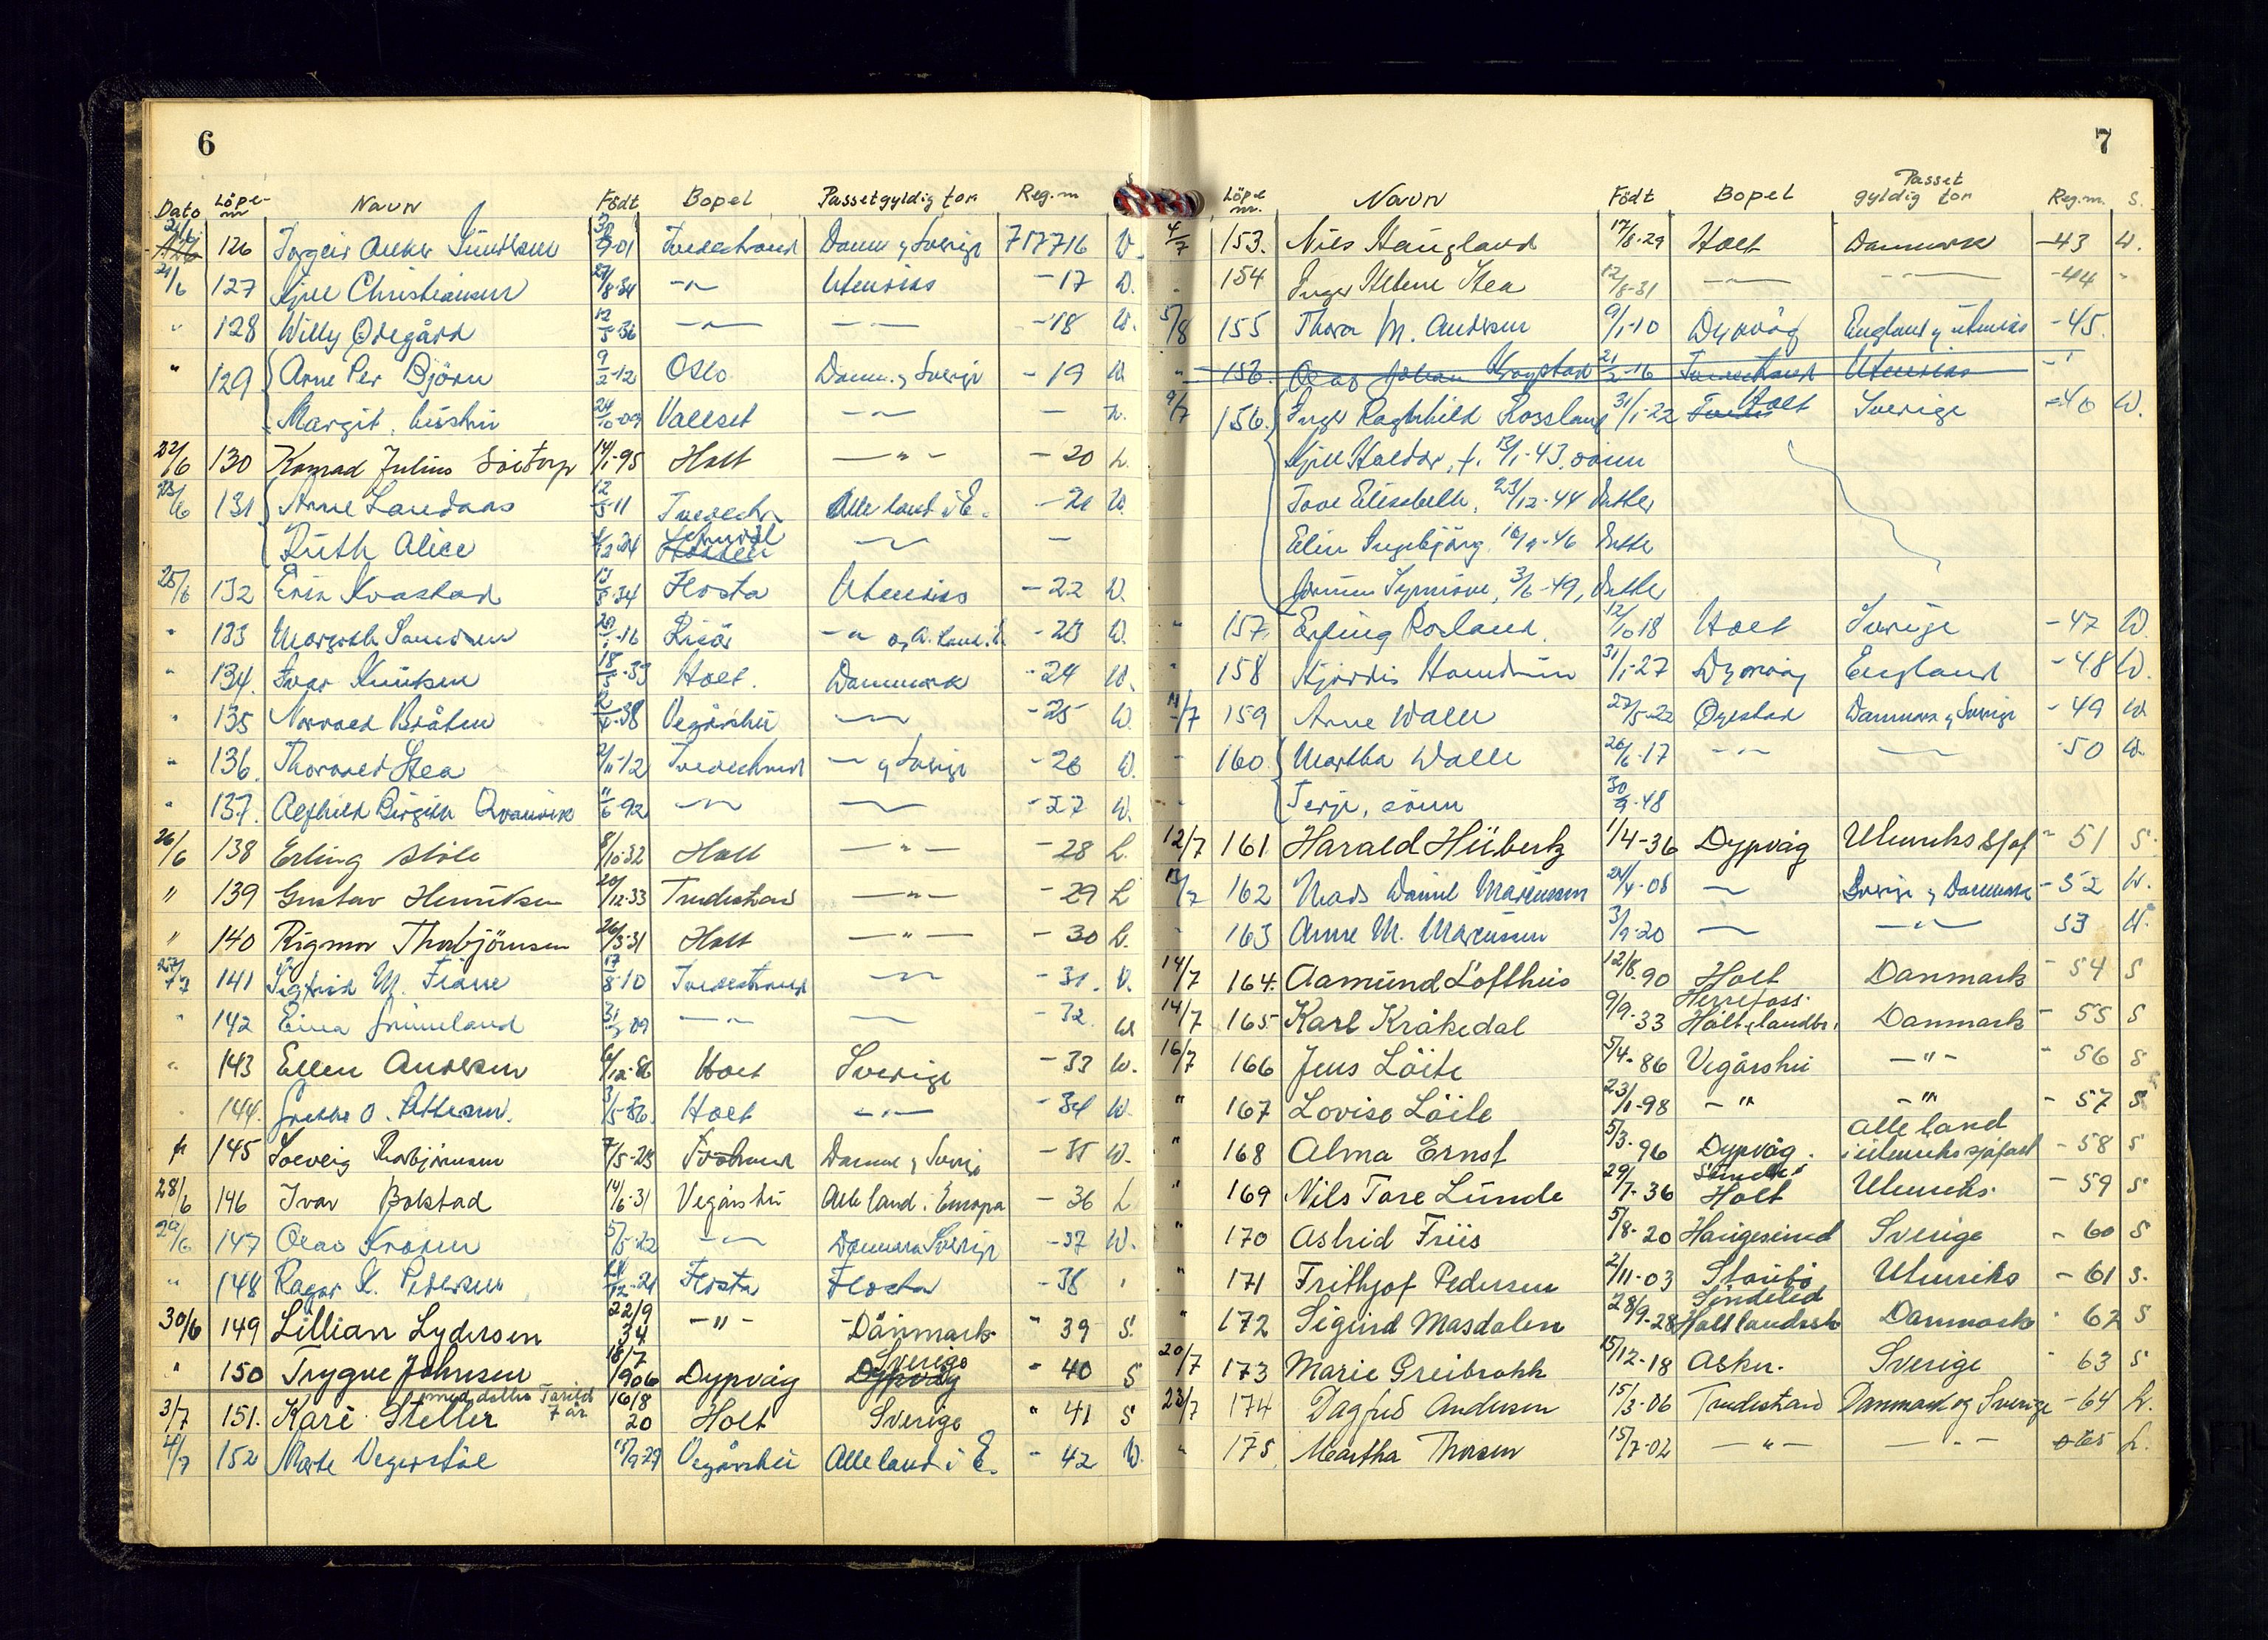 6
Dato Löpe-nr Navn Født Bopel Passetgyldig for Reg.nr
21/6 126 Torgeir Anker 01 Tvedestrand Danm. og Sverige 717716 W.
21/6 127 Kjell Christiansen 29/8-34 -"- Utenriks -17 W.
" 128 Willy Ødegård 12/5-36 -"- -"- -18 W.
" 129 Arne Per Björn 9/2-12 Oslo Danm. og Sverige -19 W
Margit, hustru 24/10-09 Vallset -"- -
22/6 130 Konrad Julius 14/1-95 Holt -"- -20 L.
23/6 131 Arne Landaas 12/5-11 Tvedestr Alle land i E. -21 W.
Ruth Alice -24 -"- -
25/6 132 Erik Kvastad -34 Flosta Utenriks -22 W.
" 133 Margoth -16 Risör -"- og A. land i E. -23 W.
" 134. Ivar Knutsen 18/5-33 Holt. Danmark -24 W.
" 135 Norvald Bråten -38 Vegårshei -"- -25 W.
" 136. Thorvald Stea 2/11-12 Tvedestrand -"- og Sverige -26 W.
" 137. Alfhild Birgith 11/6-92 -"- -"- -27 W.
26/6 138 Erling Støle 8/10-32 Holt -"- -28 L.
" 139 Gustav Henriksen 20/12-33 Tvedestrand -"- -29 L
" 140 Rigmor Thorbjörnsen 26/3-31 Holt -"- -30 L.
141 Sigfrid M. Fiane 17/8-10 Tvedestrand -"- -31. W.
" 142 Grimeland 31 -09 -"- -"- -32. W
" 143 Ellen Andersen 6/12-86 Holt Sverige -33 W.
" 144. Grethe O. 3/5-36. Holt -"- -34 W.
145 Solveig Thorbjörnsen 7/5-28 Danm. og Sverige -35 W.
28/6 146 Ivar Bolstad 14/6-31 Vegårshei Alle land i Europa -36 L
29/6 147 Olav 5/5-22 -"- Danmark Sverige -37 W.
" 148 Ragnar Pedersen /12-21 Flosta Flosta -38 "
30/6 149 Lillian Lydersen 22/9 34 -"- Danmark " 39 S.
" 150 Trygve Johnsen 18/7 1906 Dypvåg Dypvåg Sverige - 40 S
3/7 151. Kari Steller med datter Torild 7 år 16/8 20 Holt Sverige " 41 S
4/7 152 Marte Vegerstöl 15/9-29 Vegårshei Alle land i E. - 42 W.
7
Löpe nr. Navn Født Bopel Passet gyldig for Reg.nr. S.
4/7 153. Nils Haugland 17/8-29 Holt Danmark -43 W.
" 154 Inger Helene Stea 12/8-31 -"- -"- -44 "
5/8 155 Thora M. Andersen 9/1-10 Dypvåg England og utenriks -45.
" 156. Olav Johan 21/2-16 Tvedestrand Utenriks -
9/7 156. Inger Ragnhild Rossland 31/1-22 Holt Sverige -46 W.
Kjell Haldor, f. 13/1-43, sönn
Tove Elisabeth, 23/12-44 datter
Elin Ingebjörg 10/9-46 datter
Synnöve, 3/6-49, datter
" 157. Erling Rosland. 12/10 18 Holt Sverige -47 W.
" 158 Hjördis 31/1-27 Dypvåg England -48 W.
/7 159 Arne Walle 27/5-22 Øyestad Danmark og Sverige -49 W
- 160 Martha Walle 26/6-17 -"- -"- -50 W.
- Terje, sönn 30/9-48
12/7 161 Harald Hübertz 1/4-36 Dypvåg Utenriks sjøf - 51 S.
13/7 162 Mads Daniel Marcussen 24/4-08 -"- Sverige og Danmark - 52 W.
- 163 Anne M. Marcussen 3/9-20 -"- -"- 53 W.
14/7 164. Aamund Lofthus 12/8.90 Holt Danmark - 54 S
14/7 165 Karl Kråkedal 9/9-33 Herrefoss. Holt, landbr. Danmark - 55 S
16/7 166 Jens Löite 5/4-86 Vegårshei -"- " 56 S
" 167 Lovise Löite 23/1-98 -"- -"- - 57 S
" 168 Alma Ernst 5/3-96 Dypvåg. Alle land i utenriks sjøfart - 58 S
" 169 Nils Tore Lunde 29/7-36 Holt Utenriks. - 59 S
" 170 Astrid Friis 5/8-20 Haugesund Sverige - 60 S
" 171 Frithjof Pedersen 2/11-03 Staubö Utenriks - 61 S.
" 172 Sigurd Masdalen 28/9-28 Söndeled Holt landssk Danmark " 62 S
20/7 173 Marie Greibrokk 15/12-18 Asker. Sverige " 63 S
23/7 174 Dagfred Andersen 15/3-06 Tvedestrand Danmark og Sverige -64 L.
" 175. Martha Thorsen 15/7-02 -"- -"- 65 L.